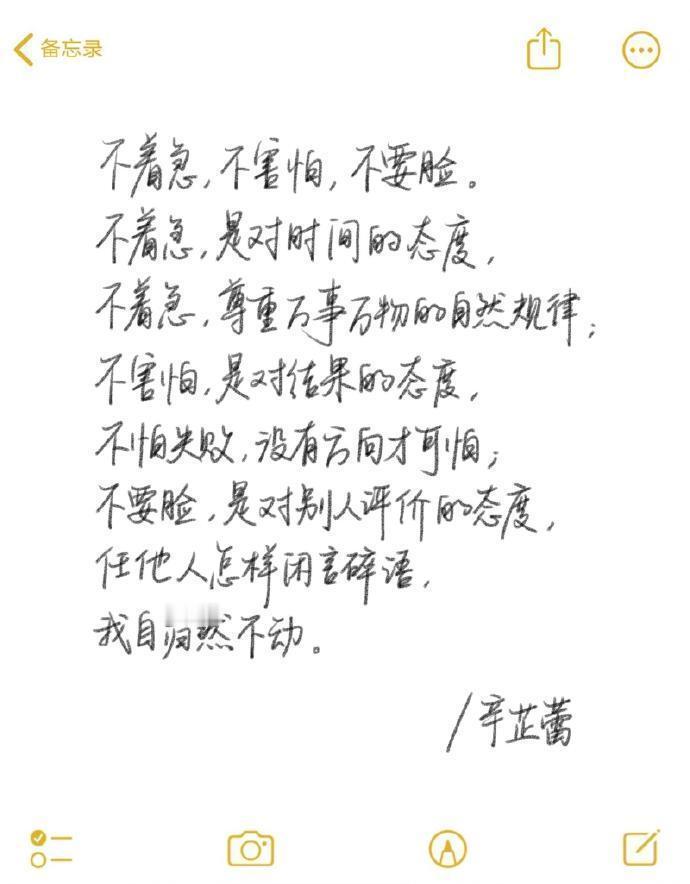 备忘录
不着急,不害怕,不要脸。
不着急,是对时间的态度,
不着急,尊重万事万物的自然规律;
不害怕,是对结果的态度,
不怕失败,没有方向才可怕;
不要脸,是对别人评价的态度,
任他人怎样闲言碎语,
我自归然不动。
/辛芷蕾